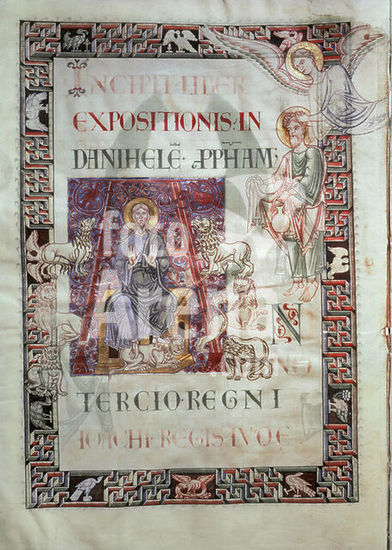 INCIPIT·LIBER
EXPOSITIONIS·IN
DANIHELĒ·PPHAM;
N
NO
TERCIO·REGNI
IOICHI·REGIS·IVDE
foto
Ar